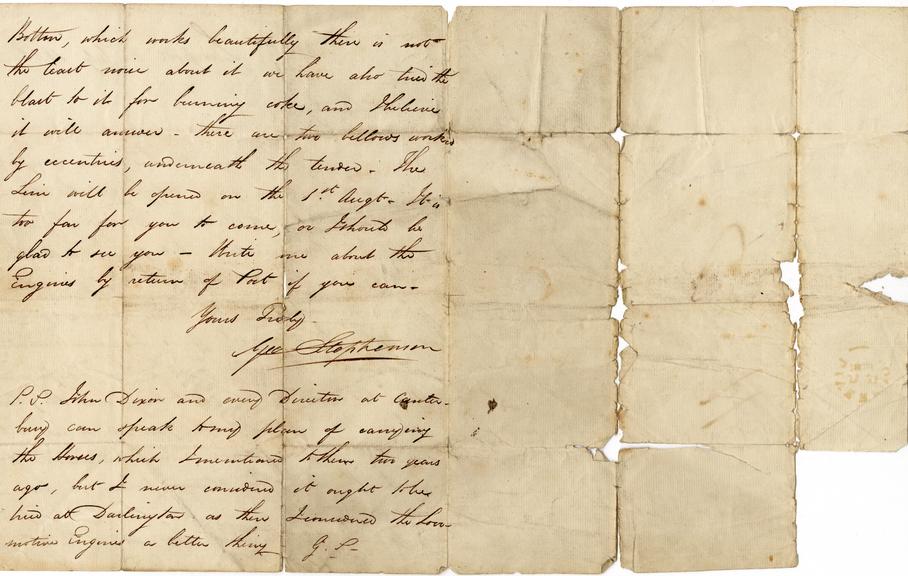 Bolton, which works beautifully there is not
the least noise about it we have also tried the
blast to it for burning coke, and I believe
it will answer - there are two bellows worked
by eccentrics, underneath the tender. The
Line will be opened on the 1st Augt - It is
too far for you to come, or I should be
glad to see you - Write me about the
Engines by return of Post if you can -
Yours Truly
Geo Stephenson
P.S. John Dixon and every Director at Canter-
bury can speak to my plan of carrying
the Horses, which I mentioned to them two years
ago, but I never considered it ought to be
tried at Darlington as then I considered the Loco-
motive Engines a better thing G. S-